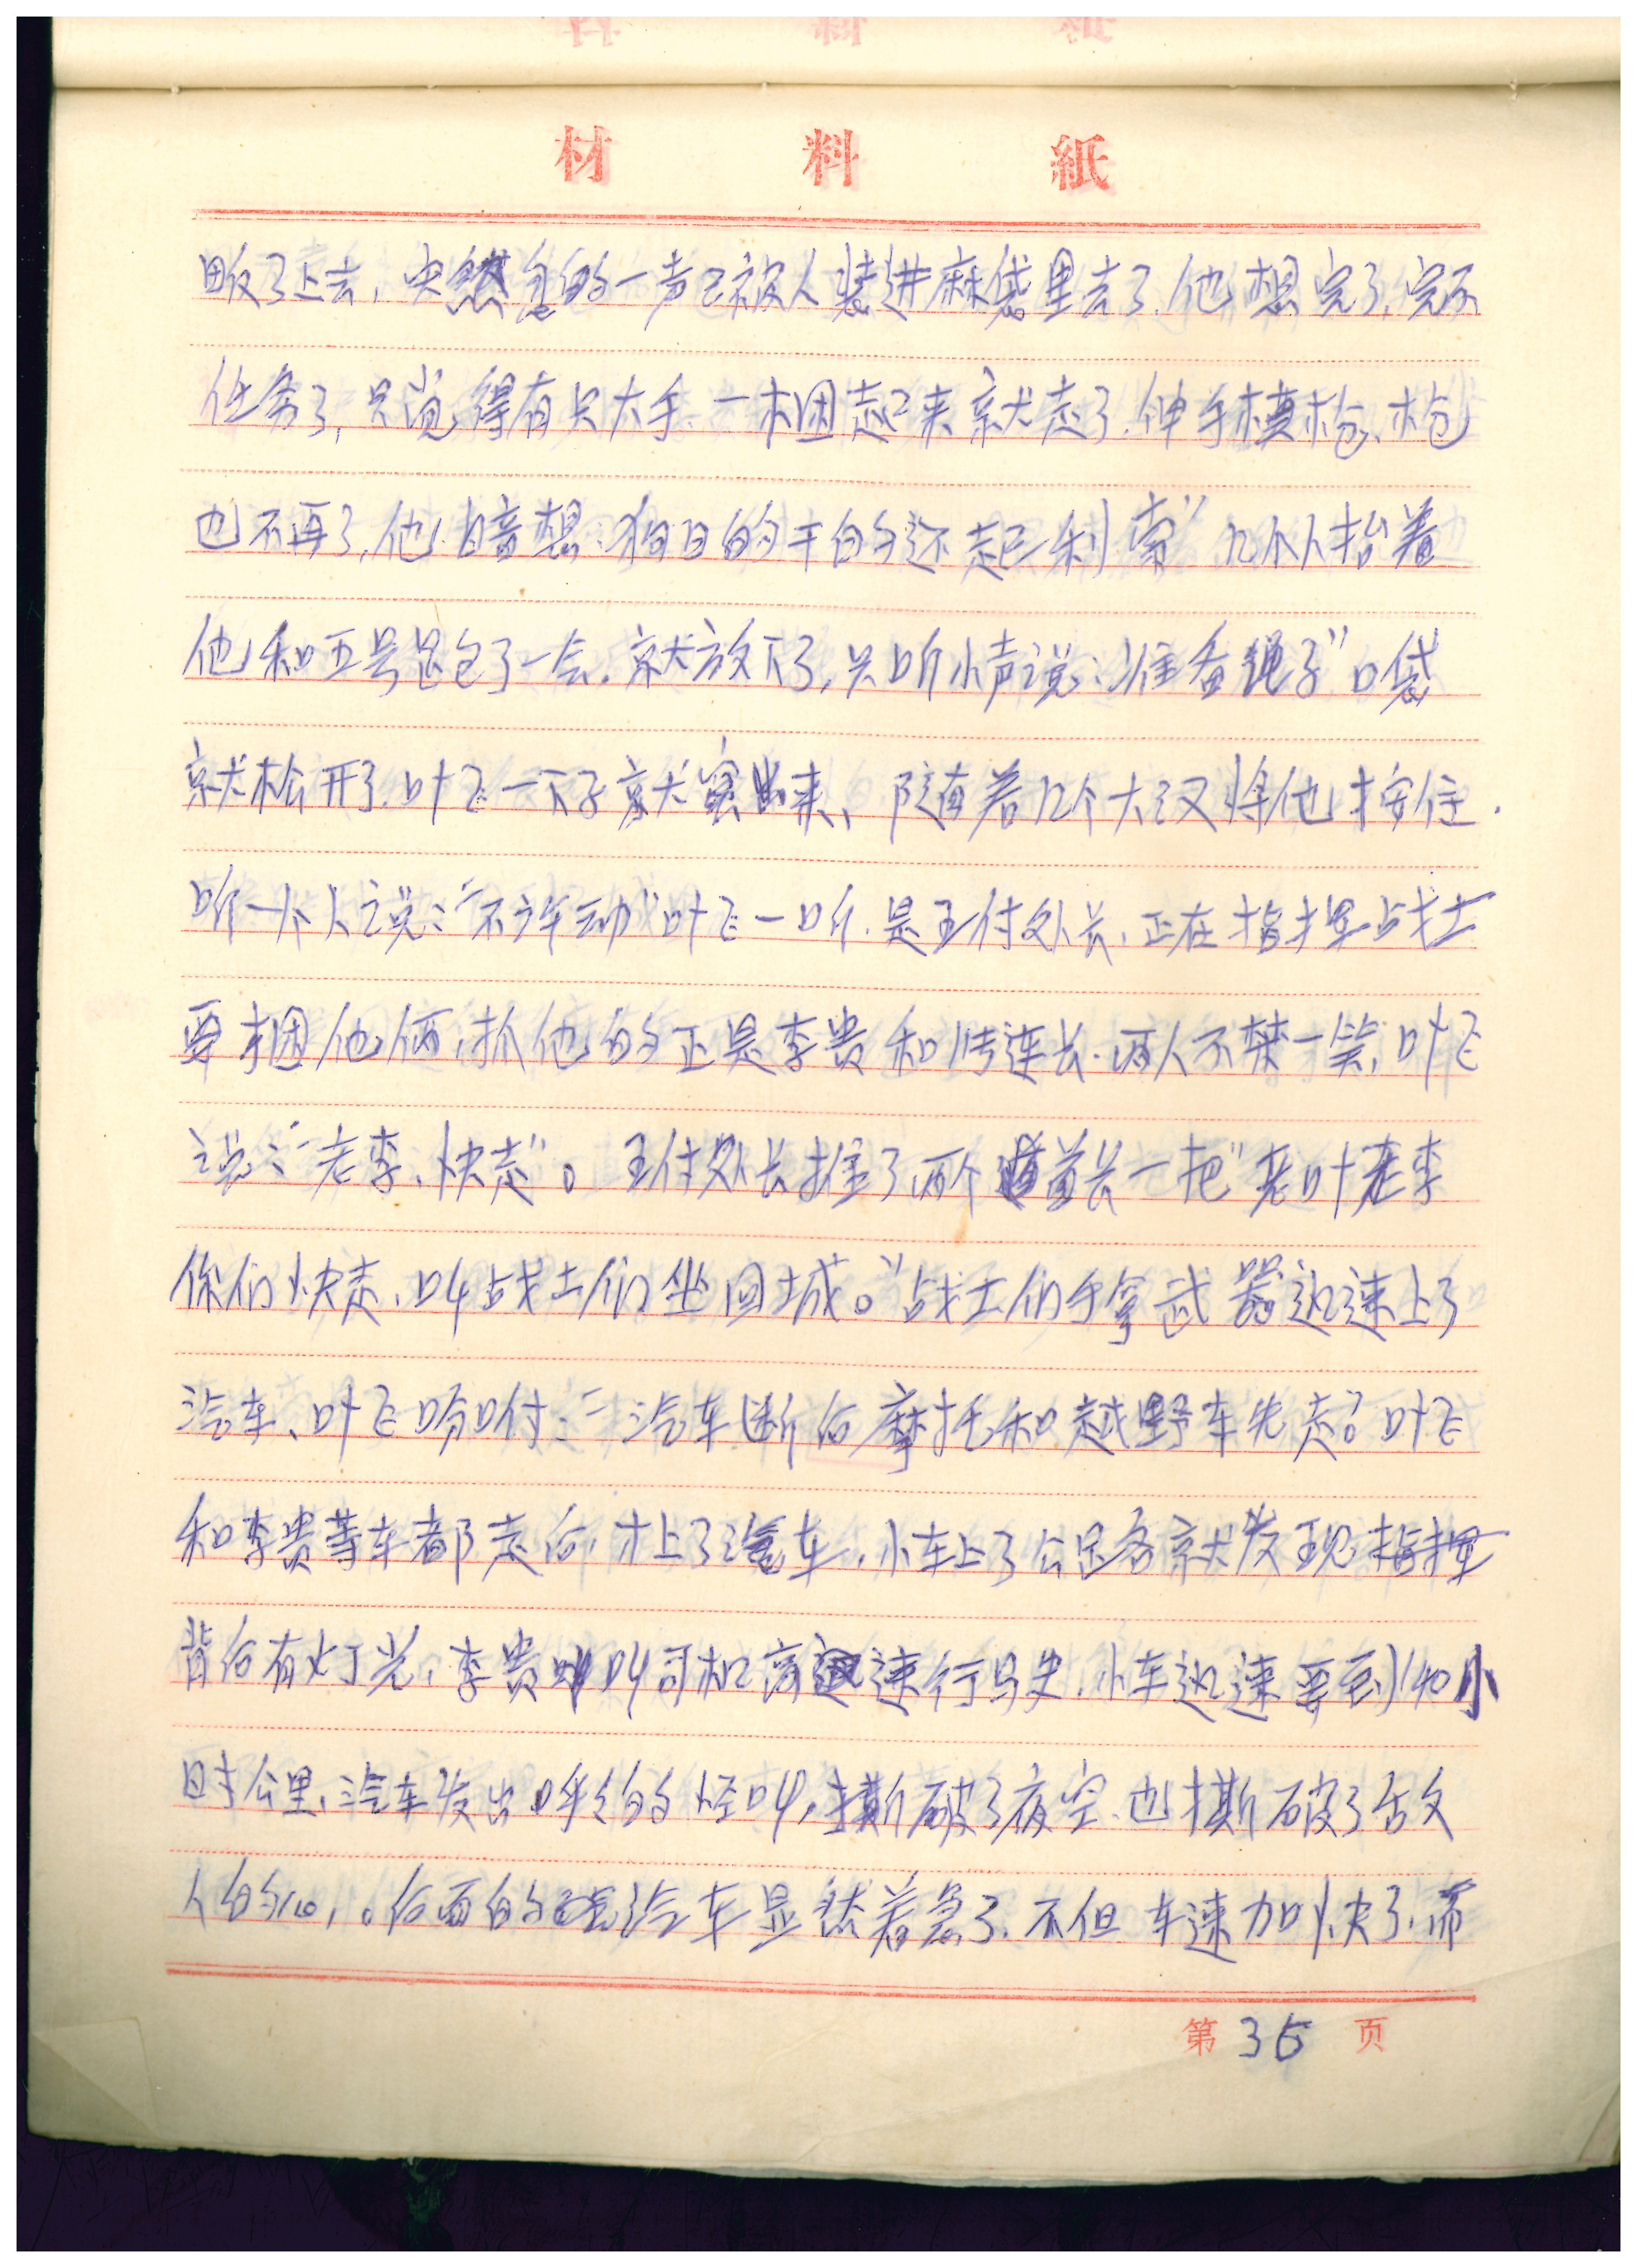 材料紙
了上去，突然忽的一声已被人装进麻袋里去了.他想完了，完不
任务了，只觉得有只大手、一捆起来就走了.伸手摸枪、枪
也不再了，他暗想：狗日的干的还起利索”几个人抬着
他和五号跑了一会.就放下了，只听小声说：准备绳子”口袋
就松开了.叶飞一下子就窜出来、随着几个大汉将他按住.
听一个人说：“不许动”叶飞一听.是王付处长、正在指挥战士
要捆他俩，抓他的正是李贵和傅连长.两人不禁一笑，叶飞
说：“老李、快走”。王付处长推了两个首长一把“老叶老李
你们快走、叫战士们坐回城。”战士们手拿武器迅速上了
汽车、叶飞吩咐：“汽车断后摩托和越野车先走”叶飞
和李贵等车都走后，才上了汽车.小车上了公路就发现指挥
背后有灯光，李贵叫司机高速行驶.小车迅速要到140小
时公里、汽车发出呼呼的怪叫，撕破了夜空、也撕破了敌
人的。后面的汽车显然着急了.不但车速加快了.而
第35页